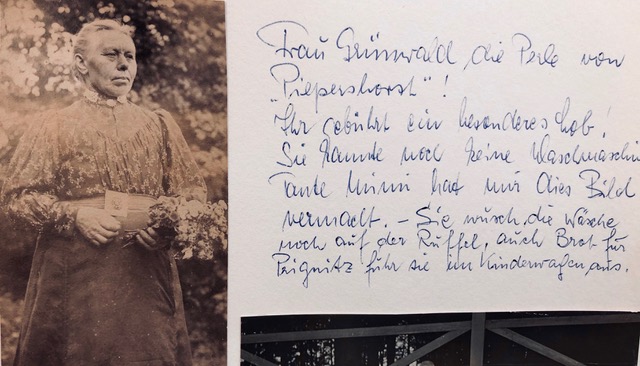 Frau Grünwald die Perle von
"Piepershorst"!
Ihr gebührt ein besonderes Lob!
Sie kannte noch keine Waschmaschin
Tante Mimi hat mir dies Bild
vermacht. – Sie wusch die Wäsche
noch auf der Ruffel, auch Brot für
Prignitz fuhr sie im Kinderwagen aus.